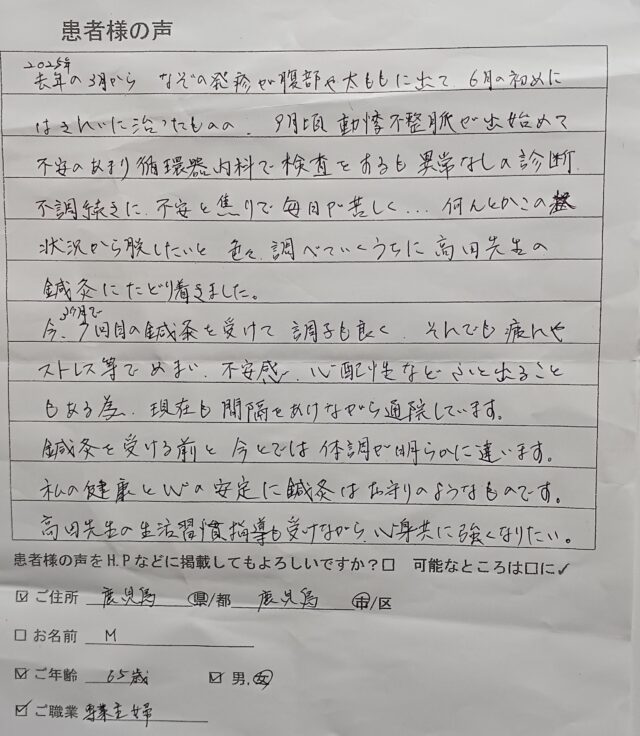 患者様の声
2025年
去年の3月から なぞの発疹が腹部や太ももに出て、6月の初めに
はきれいに治ったものの、9月頃 動悸不整脈が出始めて
不安のあまり循環器内科で検査をするも異常なしの診断
不調続きに、不安と焦りで毎日が苦しく… 何んとかこの
状況から脱したいと 色々調べていくうちに高田先生の
鍼灸にたどり着きました。
3ヶ月で
今、7回目の鍼灸を受けて 調子も良く、それでも疲れや
ストレス等でめまい、不安感、心配性など ふと出ること
もある為、現在も間隔をあけながら通院しています。
鍼灸を受ける前と 今とでは 体調が明らかに違います。
私の健康と心の安定に鍼灸はお守りのようなものです。
高田先生の生活習慣指導も受けながら、心身共に強くなりたい。
患者様の声をH.Pなどに掲載してもよろしいですか?□ 可能なところは□に✓
☑ ご住所 鹿児島 県/都 鹿児島 市/区
□ お名前 M
☑ ご年齢 65歳 ☑ 男.女
☑ ご職業 専業主婦